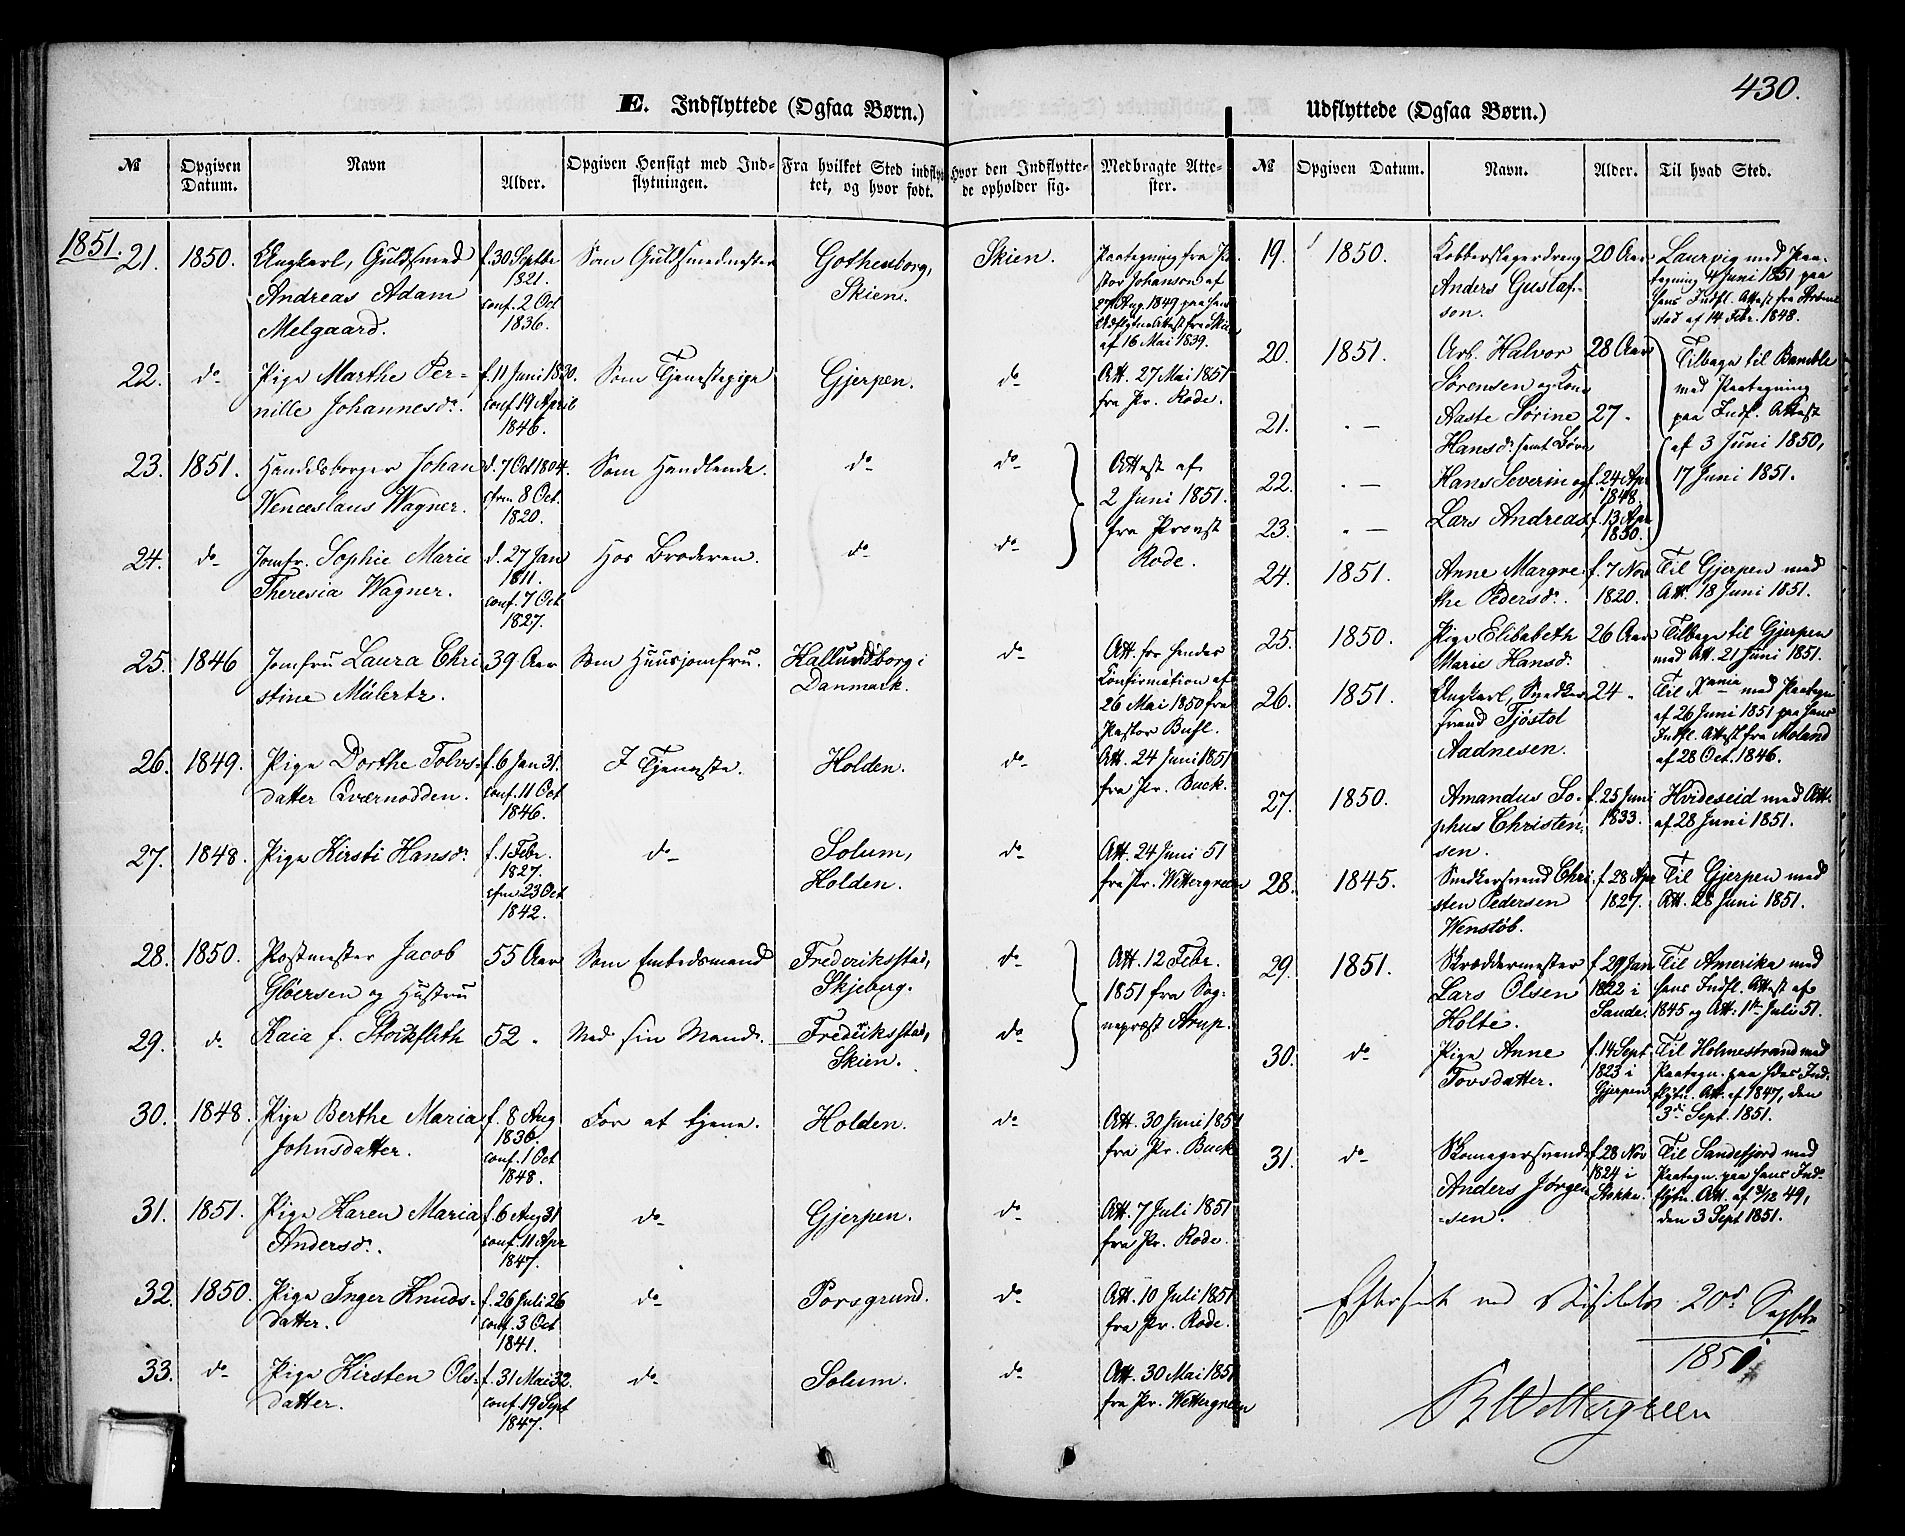 430.
E. Indflyttede (Ogsaa Børn.)
Udflyttede (Ogsaa Børn.)
№ | Opgiven Datum. | Navn | Alder. | Opgiven Hensigt med Indflytningen. | Fra hvilket Sted indflyttet, og hvor født. | Hvor den Indflyttede opholder sig. | Medbragte Attester.
1851.
21. 1850. Ungkarl, Guldsmed f. 30 Septbr Som Guldsmedmester Gothenborg, Skien. Paategning fra Pa-
Andreas Adam 1821. Skien. stor Johanson af
Melgaard. conf. 2 Oct 27 Aug. 1849 paa hans
1836. Udflytn. Attest fra Skien
af 16 Mai 1839.
22. do Pige Marthe Per- f. 11 Juni 1830. Som Tjenestepige Gjerpen. do Att. 27 Mai 1851
nille Johannesdr. conf. 19 April fra Pr. Rode.
1846.
23. 1851. Handelsborger Johan d. 7 Oct 1804. Som Handlende. do do Attest af
Wenceslaus Wagner. cfrm 8 Oct. 2 Juni 1851.
1820. fra Provst
24. do Jomfr. Sophie Marie d. 27 Jan Hos Broderen. do do Rode.
Theresia Wagner. 1811.
conf. 7 Oct
1827.
25. 1846 Jomfru Laura Chri 39 Aar Som Huusjomfru. Kallundborg i do Att. for hendes
stine Mülertz. Danmark. Confirmation af
26 Mai 1850 fra
Pastor Buhl.
26. 1849. Pige Dorthe Tolvs- f. 6 Jan 31. I Tjeneste. Holden. do Att. 24 Juni 1851
datter Qværnodden. conf. 11 Oct fra Pr. Buck.
1846.
27. 1848. Pige Kirsti Hansdr. f. 1 Febr. do Solum, do Att. 24 Juni 51
1827. Holden. fra Pr. Wettergreen
cfm 23 Oct
1842.
28. 1850. Postmester Jacob 55 Aar Som Embedsmand Frederiksstad, do Att. 12 Febr.
Gløersen og Hustru Skjeberg. 1851 fra Sog-
29. do Kaia f. Stockfleth 52 " Med sin Mand. Frederiksstad, do nepræst Arup.
Skien.
30. 1848. Pige Berthe Maria f. 8 Aug For at tjene. Holden. do Att. 30 Juni 1851
Johnsdatter. 1830. fra Pr. Buck
conf. 1 Oct
1848.
31. 1851. Pige Karen Maria f. 6 Aug 31 do Gjerpen. do Att. 7 Juli 1851
Andersdr. conf. 11 Apr fra Pr. Rode.
1847.
32. 1850. Pige Inger Knuds- f. 26 Juli 26 do Porsgrund. do Att. 10 Juli 1851
datter. conf. 3 Oct fra Pr. Rode.
1841.
33. do Pige Kirsten Ols- f. 31 Mai 32. do Solum. do Att. 30 Mai 1851
datter. conf. 19 Sept fra Pr. Wettergreen
1847.
№ | Opgiven Datum. | Navn. | Alder. | Til hvad Sted.
19. 1850. Kobberslagerdreng 20 Aar Laurvig med Paa-
Anders Gustaf- tegning 4 Juni 1851 paa
son. hans Indfl. Attest fra
stad af 14 Febr. 1848.
20. 1851. Arb. Halvor 28 Aar Tilbage til Bamble
Sørensen og Kone med Paategning
21. " — Aaste Sørine 27 " paa Indfl. Attest
Hansdr. samt Børn af 3 Juni 1850,
22. " — Hans Severin og f. 24 Apr 17 Juni 1851.
1848.
23. " — Lars Andreas f. 13 Apr
1850.
24. 1851. Anne Margre- f. 7 Nov Til Gjerpen med
the Pedersdr. 1820. Att. 18 Juni 1851.
25. 1850. Pige Elisabeth 26 Aar Tilbage til Gjerpen
Marie Hansdr. med Att. 21 Juni 1851.
26. 1851. Ungkarl, Snedker- 24 " Til Rania med Paategn
svend Tjøstol af 26 Juni 1851 paa hans
Aadnesen. Indfl. Attest fra Moland
af 28 Oct. 1846.
27. 1850. Amandus So- f. 25 Juni Hvideseid med Att.
phus Christen- 1833. af 28 Juni 1851.
sen.
28. 1845. Snedkersvend Chri f. 28 Apr Til Gjerpen med
sten Pedersen 1827. Att. 28 Juni 1851.
Wenstøb.
29. 1851. Skræddermester f. 29 Jan Til Amerika med
Lars Olsen 1822 i hans Indfl. Attest af
Holte. Sande. 1845 og Att. 1ste Juli 51.
30. do Pige Anne f. 14 Sept Til Holmestrand med
Tovsdatter. 1823 i Paategn. paa hdes Ind-
Gjerpen. flytn. Att. af 1847, den
3die Sept. 1851.
31. do Skomagersvend f. 28 Nov Til Sandefjord med
Anders Jørgen- 1824 i Paategn. paa hans Ind-
sen. Stokke. flytn. Att. af 3/12 49,
den 3 Sept 1851.
Efterseet ved Visitats 20de Septbr
1851
Wettergreen